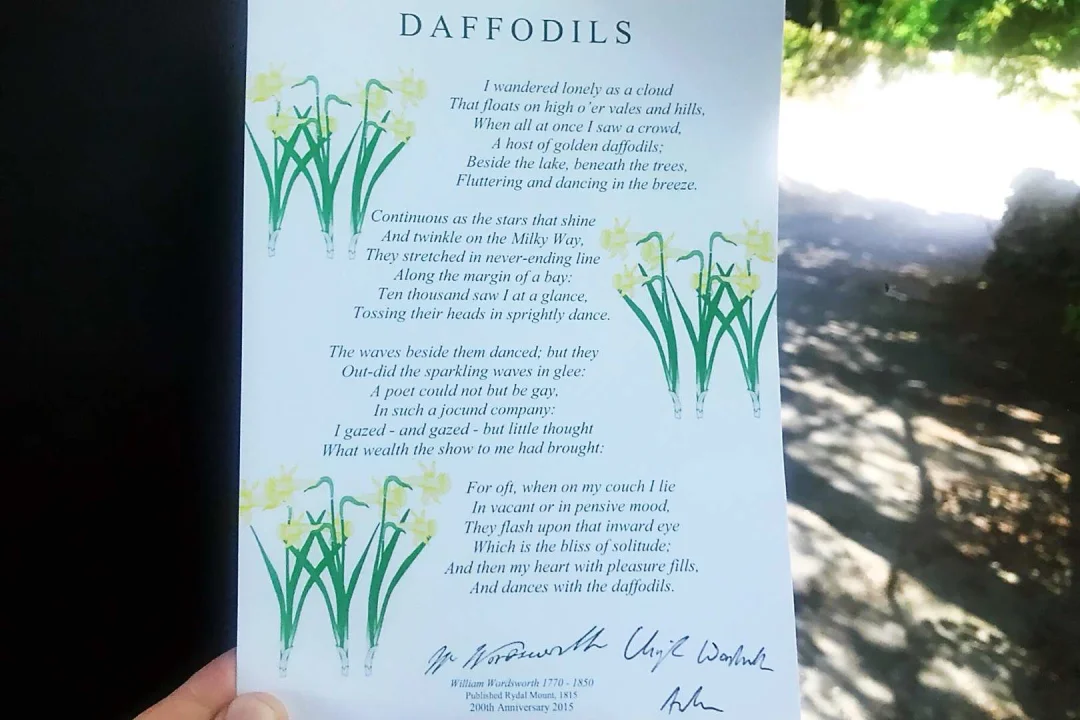 DAFFODILS
I wandered lonely as a cloud
That floats on high o'er vales and hills,
When all at once I saw a crowd,
A host of golden daffodils;
Beside the lake, beneath the trees,
Fluttering and dancing in the breeze.
Continuous as the stars that shine
And twinkle on the Milky Way,
They stretched in never-ending line
Along the margin of a bay:
Ten thousand saw I at a glance,
Tossing their heads in sprightly dance.
The waves beside them danced; but they
Out-did the sparkling waves in glee:
A poet could not but be gay,
In such a jocund company:
I gazed - and gazed - but little thought
What wealth the show to me had brought:
For oft, when on my couch I lie
In vacant or in pensive mood,
They flash upon that inward eye
Which is the bliss of solitude;
And then my heart with pleasure fills,
And dances with the daffodils.
Wm Wordsworth
William Wordsworth 1770 - 1850
Published Rydal Mount, 1815
200th Anniversary 2015